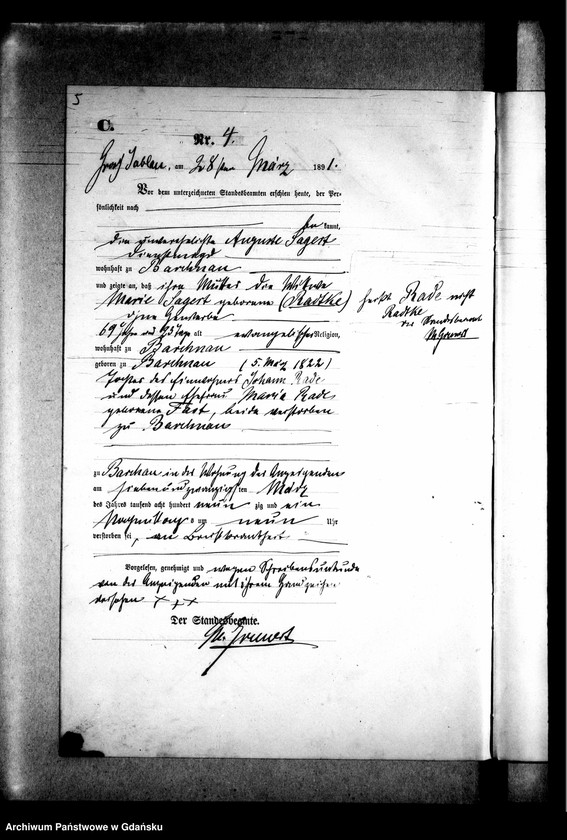 5
C.
Nr. 4.
Groß Jablau, am 28ten März 1891.
Vor dem unterzeichneten Standesbeamten erschien heute, der Per-
sönlichkeit nach
kannt,
die unverehelichte Auguste Sagert
Dienstmagd
wohnhaft zu Barchnau
und zeigte an, daß ihre Mutter die Wittwe
Marie Sagert geborene (Radtke) heißt Rade nicht
Radtke
ohne Gewerbe
der Standesbeamte
69 Jahre alt evangelischer Religion,
wohnhaft zu Barchnau
geboren zu Barchnau (5. März 1822)
Tochter des Einwohners Johann Rade
und dessen Ehefrau Maria Rade
geborene, beide verstorben
zu Barchnau
zu Barchnau in der Wohnung der Anzeigenden
am siebenundzwanzigsten März
des Jahres tausend acht hundert neunzig und ein
Nachmittags um neun Uhr
verstorben sei, an Brustkrankheit
Vorgelesen, genehmigt und wegen Schreibensunkunde
von der Anzeigenden mit ihrem Handzeichen
versehen + + +
Der Standesbeamte.
Archiwum Państwowe w Gdańsku